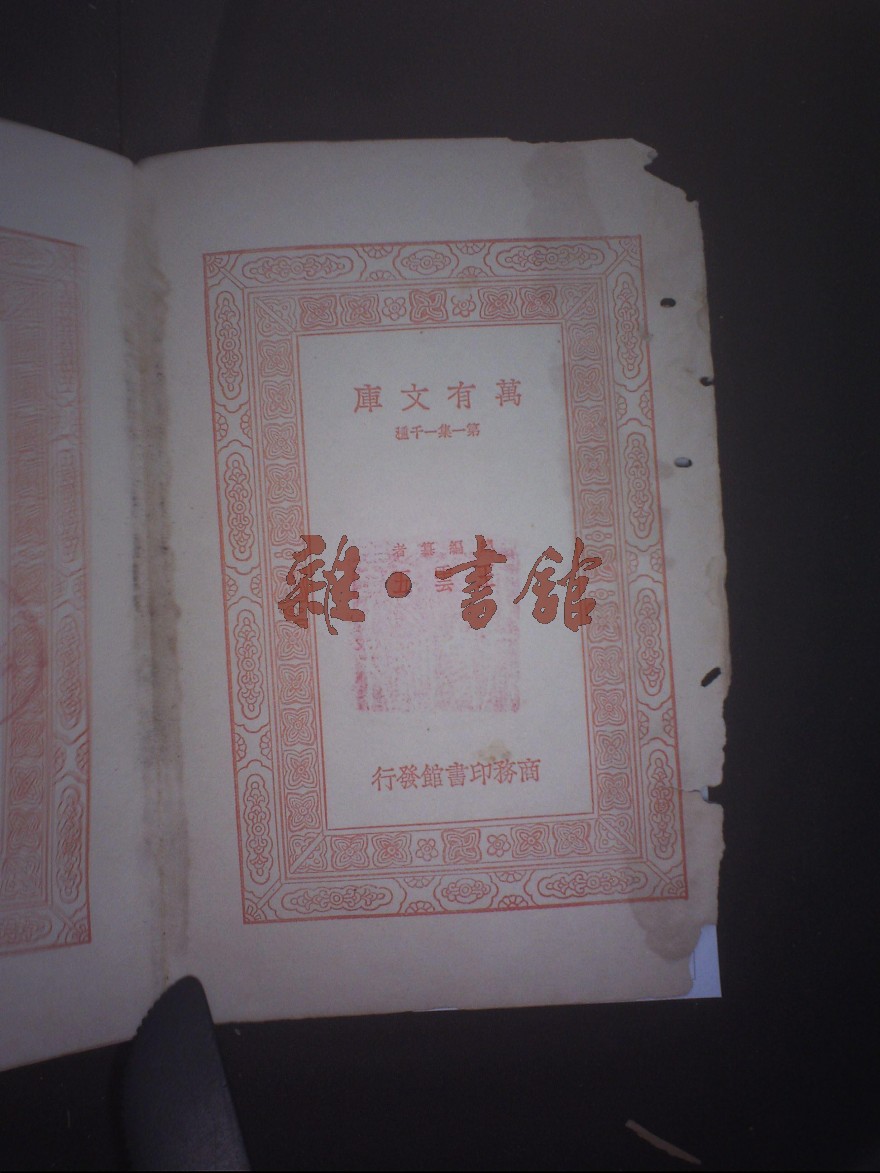 萬有文庫
第一集一千種
編纂者
雲五
商務印書館發行
雜·書館